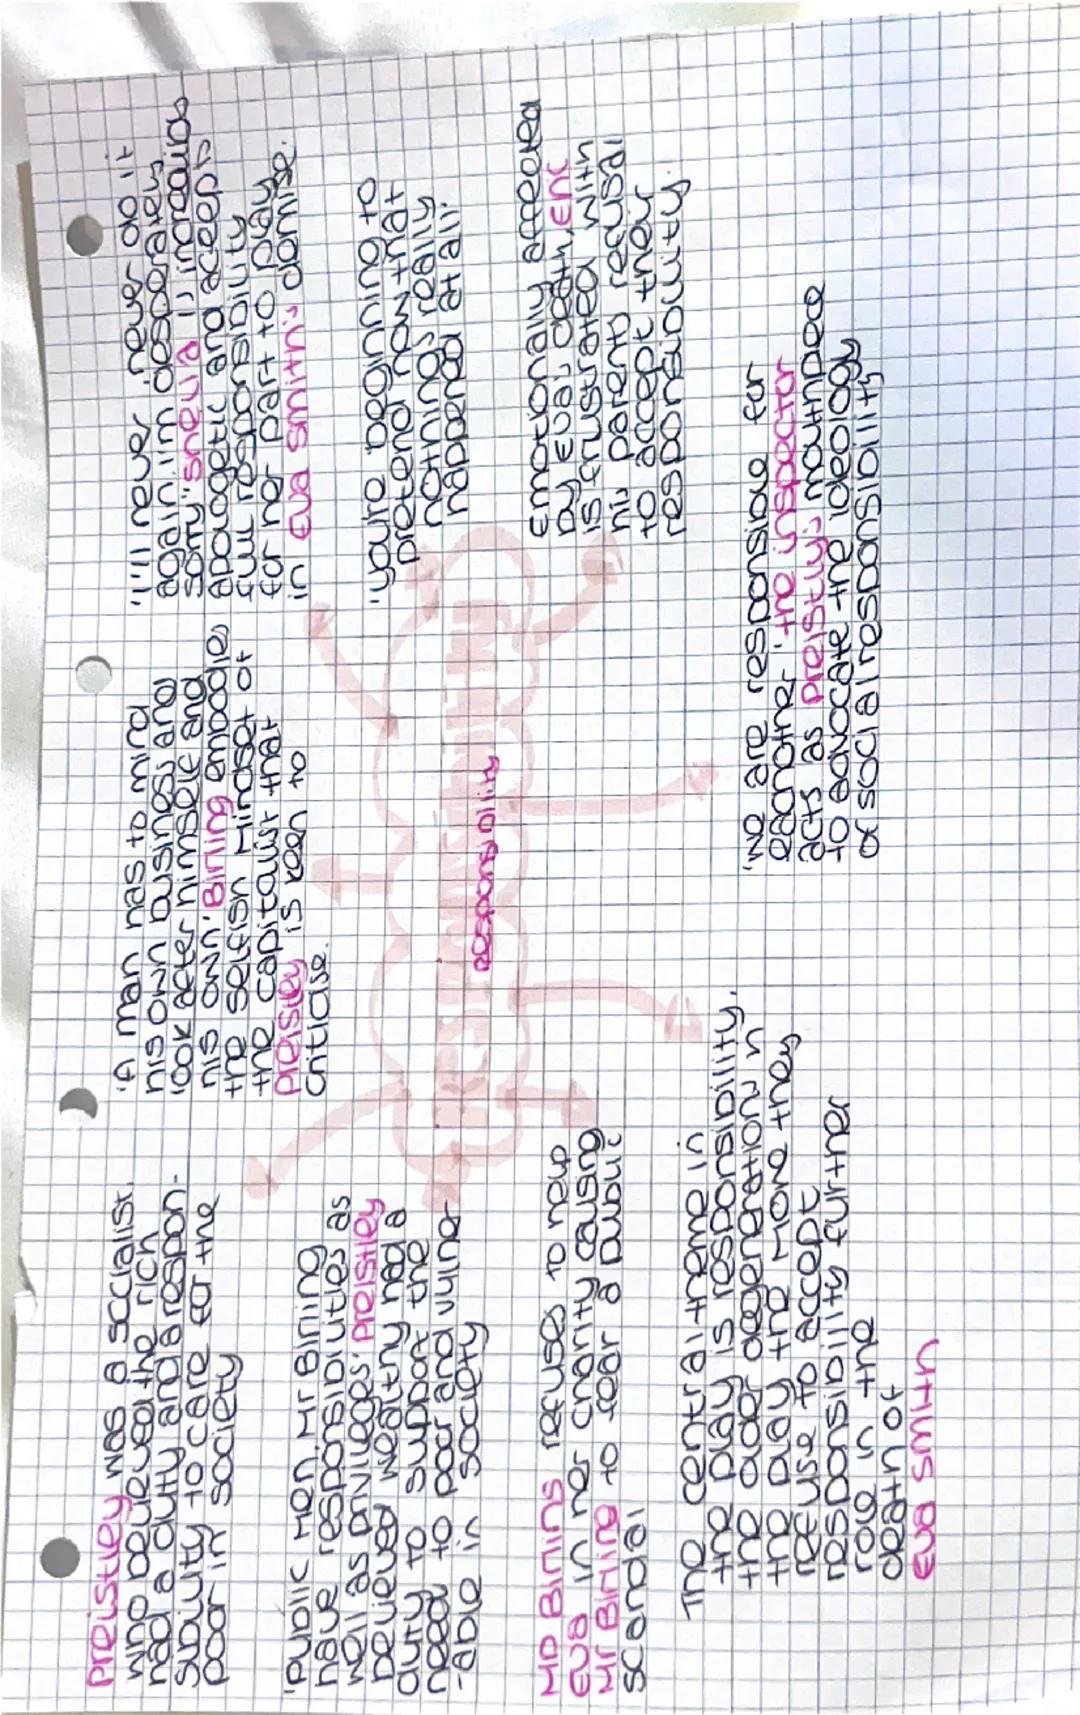 Preistley was a socialist.
who believed the rich
had a duty and a respon-
sibility to care for the
poor in society
'Public men, Mr Birling
have responsibilities as
well as privileges' Preistley
believed wealthy had a
duty to support the
need to poor and vulner
-able in society
Mrs Birlins refuses to help
Eva in her charity causing
Mr Birling to fear a public
scandal
The central theme in
the play is responsibility.
the older degeneration in
the play the more they
refuse to accept
responsibility further
role in the
death of
Eva Smith
'A man has to mind
his own business and
look after himself and
his own' Birling embodies
the selfish mindset of
the capitalist that
Preistley is keen to
criticise.
Responsibility
'we are responsible for
eachother' the inspector
acts as Preistly's mouthpiece
to advocate the ideology
of social responsibility
'I'll never, never do it
again. im
sorry' sheila is
apologetic and accepts
full responsibility
for her part to play
in Eva Smith's demise.
'youre beginning to
pretend now that
nothings really
happened at all'.
Emotionally affected
by Evas death, Eric
is frustrated with
his parents refusal
to accept their
responsibility.